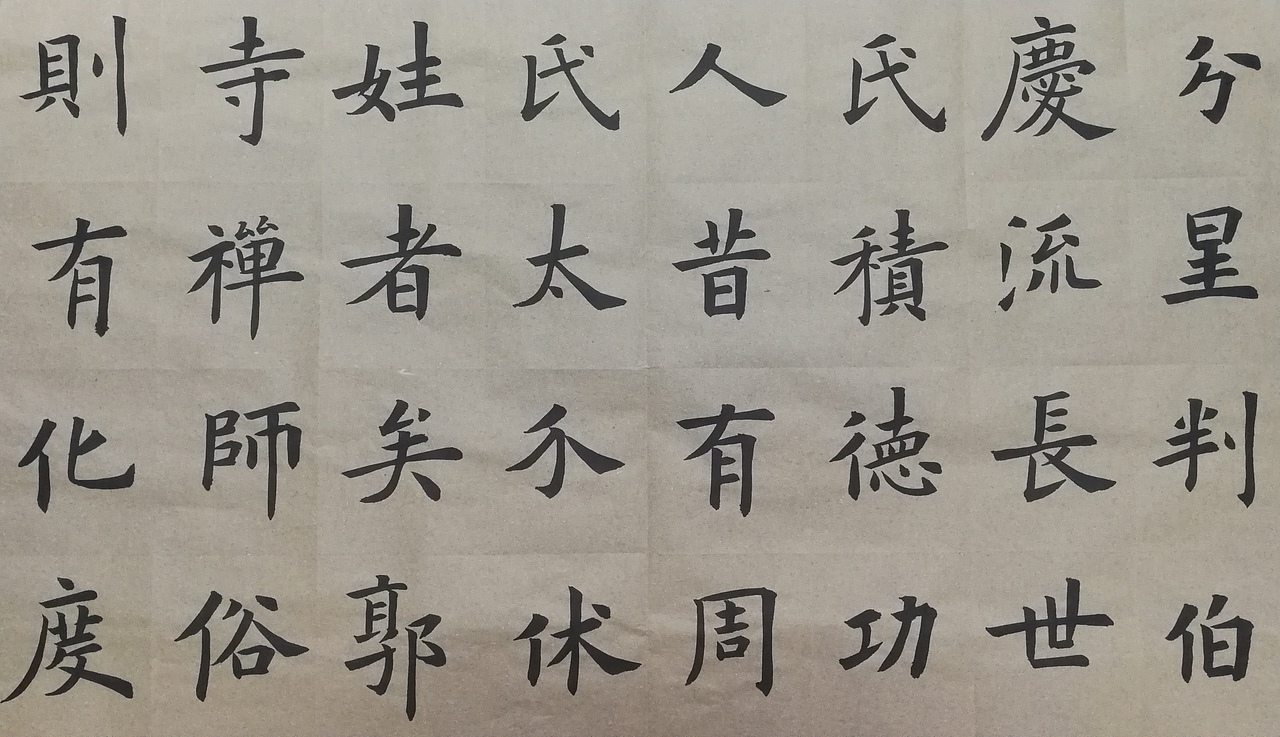 則有化度
寺禪師俗
姓者矣郭
氏太介休
人昔有周
氏積德功
慶流長世
分星判伯